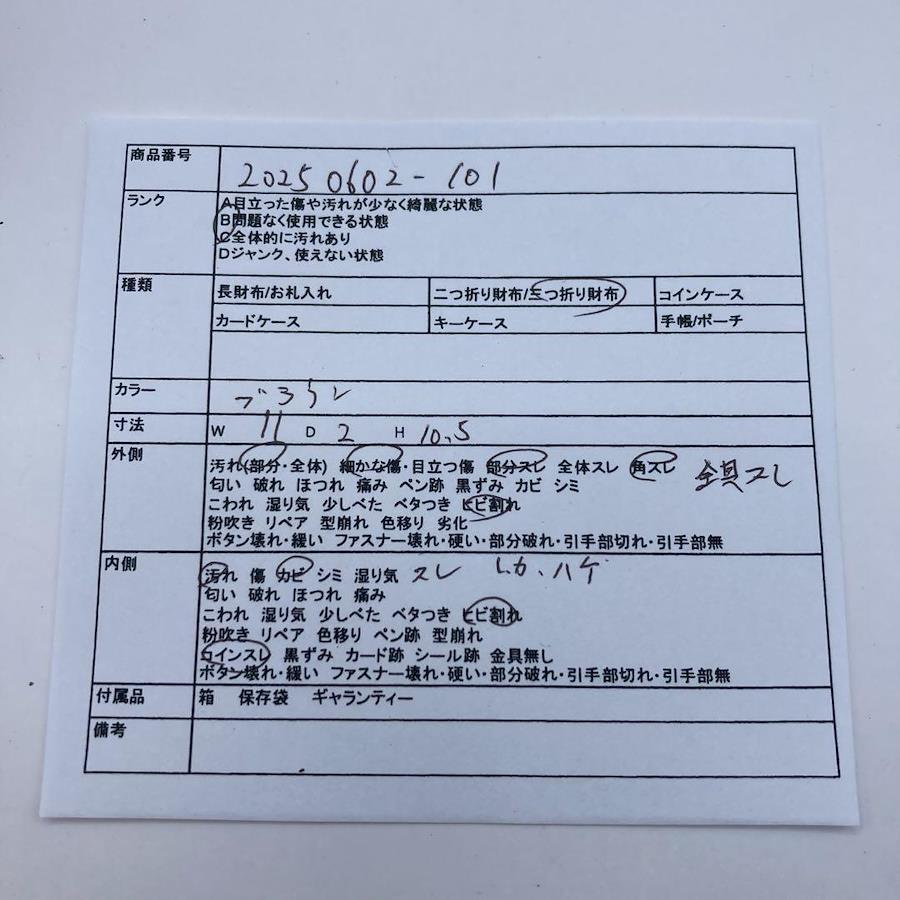 商品番号 20250602-101
ランク A目立った傷や汚れが少なく綺麗な状態
B問題なく使用できる状態
C全体的に汚れあり
Dジャンク、使えない状態
種類 長財布/お札入れ 二つ折り財布/三つ折り財布 コインケース
カードケース キーケース 手帳/ポーチ
カラー ブラウン
寸法 W 11 D 2 H 10.5
外側 汚れ(部分・全体) 細かな傷・目立つ傷 部分スレ 全体スレ 角スレ 金具スレ
匂い 破れ ほつれ 痛み ペン跡 黒ずみ カビ シミ
こわれ 湿り気 少しべた ベタつき ヒビ割れ
粉吹き リペア 型崩れ 色移り 劣化
ボタン壊れ・緩い ファスナー壊れ・硬い・部分破れ・引手部切れ・引手部無
内側 汚れ 傷 カビ シミ 湿り気 スレ ハゲ
匂い 破れ ほつれ 痛み
こわれ 湿り気 少しべた ベタつき ヒビ割れ
粉吹き リペア 色移り ペン跡 型崩れ
コインスレ 黒ずみ カード跡 シール跡 金具無し
ボタン壊れ・緩い ファスナー壊れ・硬い・部分破れ・引手部切れ・引手部無
付属品 箱 保存袋 ギャランティー
備考